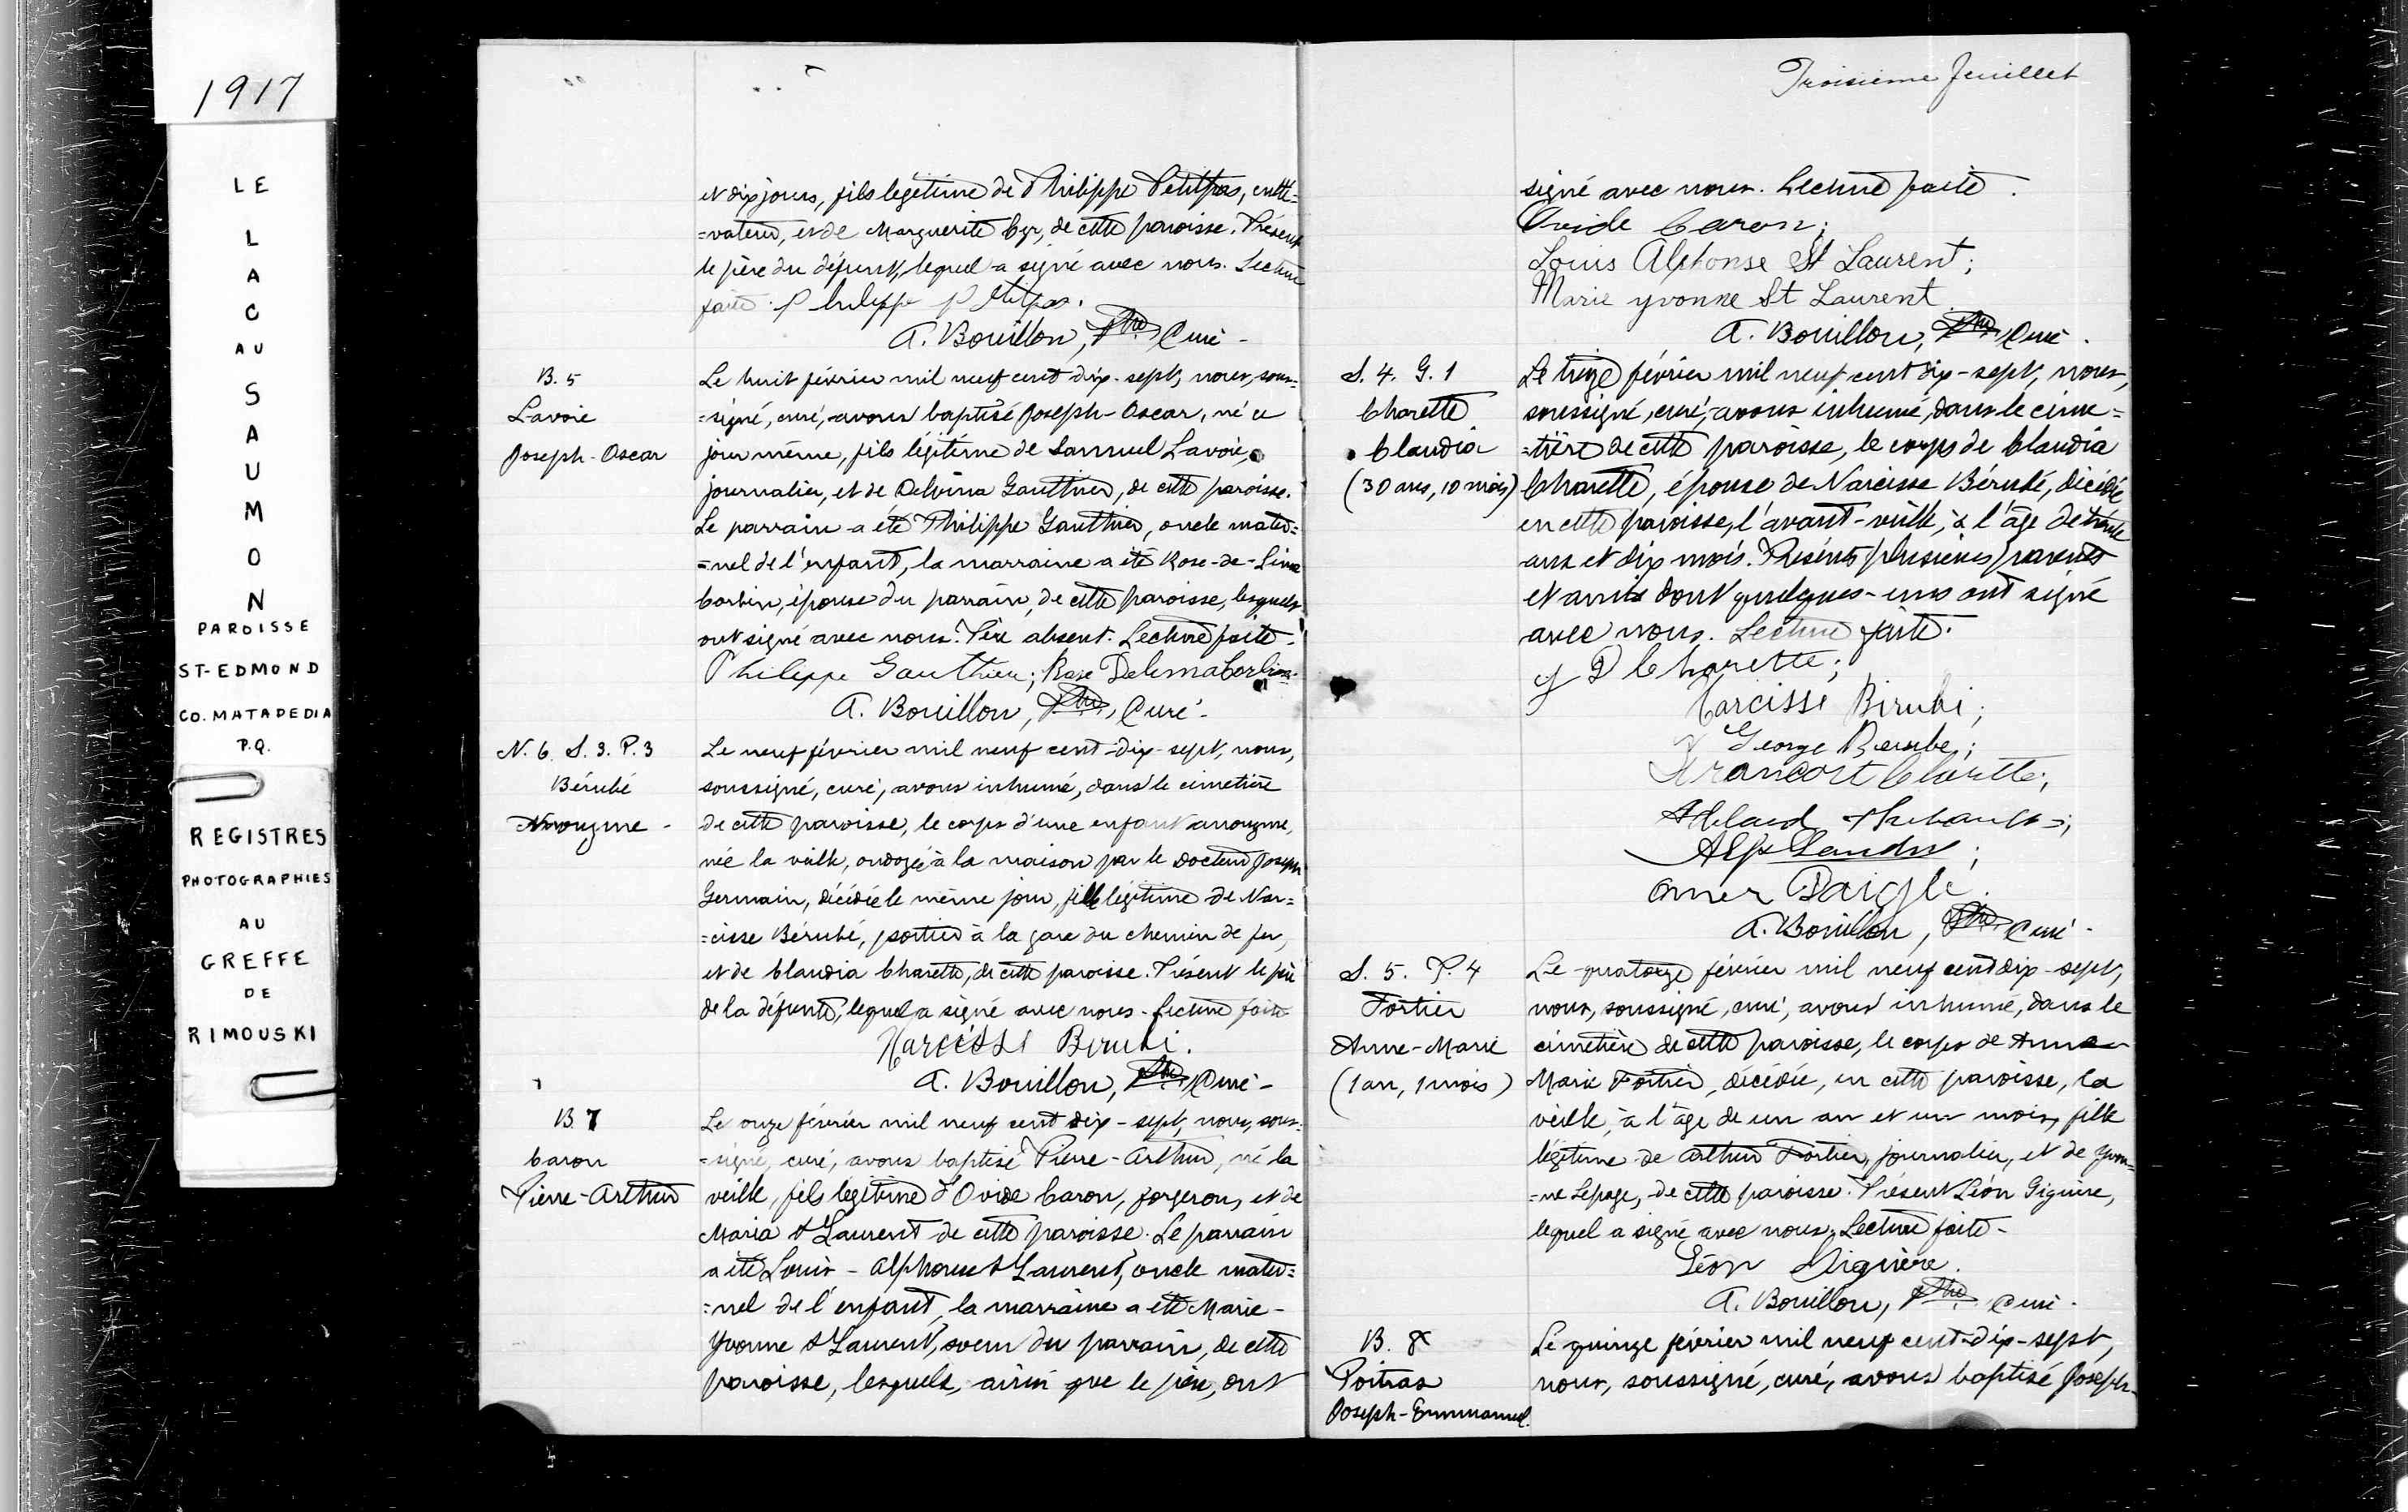 1917
LE
LAC
AU
SAUMON
PAROISSE
ST-EDMOND
CO. MATAPEDIA
P.Q.
REGISTRES
PHOTOGRAPHIES
AU
GREFFE
DE
RIMOUSKI
et dix jours, fils légitime de Philippe Petitpas, culti=
=vateur, et de Marguerite Cyr, de cette paroisse. Présent
le père du défunt, lequel a signé avec nous. Lecture
faite. Philippe Petitpas.
A. Bouillon, Ptre, Curé-
B. 5
Lavoie
Joseph-Oscar
Le huit février mil neuf cent dix-sept, nous, sous=
=signé, curé, avons baptisé Joseph-Oscar, né ce
jour même, fils légitime de Samuel Lavoie,
journalier, et de Delvina Gauthier, de cette paroisse.
Le parrain a été Philippe Gauthier, oncle mater=
=nel de l'enfant, la marraine a été Rose-de-Lima
Corbin, épouse du parrain, de cette paroisse, lesquels
ont signé avec nous. Père absent. Lecture faite-
Philippe Gauthier; Rose Delima Corbin
A. Bouillon, Ptre, Curé-
N. 6. S. 3. P. 3
Bérubé
Anonyme-
Le neuf février mil neuf cent-dix-sept, nous,
soussigné, curé, avons inhumé, dans le cimetière
de cette paroisse, le corps d'une enfant anonyme,
née la veille, ondoyée à la maison par le Docteur Joseph
Germain, décédée le même jour, fille légitime de Nar=
=cisse Bérubé, portier à la gare du chemin de fer,
et de Claudia Charette, de cette paroisse. Présent le père
de la défunte, lequel a signé avec nous-Lecture faite
Narcisse Berubi.
A. Bouillon, Ptre, Curé-
B. 7
Caron
Pierre-Arthur
Le onze février mil neuf cent dix-sept, nous, sous-
=signé, curé, avons baptisé Pierre-Arthur, né la
veille, fils légitime d'Ovide Caron, forgeron, et de
Maria St Laurent de cette paroisse. Le parrain
a été Louis-Alphonse St Laurent, oncle mater=
=nel de l'enfant, la marraine a été Marie-
Yvonne St Laurent, soeur du parrain, de cette
paroisse, lesquels, ainsi que le père, ont
Troisième feuillet
signé avec nous. Lecture faite.
Ovide Caron;
Louis Alphonse St Laurent;
Marie yvonne St Laurent
A. Bouillon, Ptre, Curé-
S. 4. G. 1
Charette
Claudia
(30 ans, 10 mois)
Le treize février mil neuf cent dix-sept, nous,
soussigné, curé, avons inhumé, dans le cime=
=tière de cette paroisse, le corps de Claudia
Charette, épouse de Narcisse Bérubé, décédée
en cette paroisse, l'avant-veille, à l'âge de trente
ans et dix mois. Présents plusieurs parents
et amis dont quelques-uns ont signé
avec nous. Lecture faite.
J D Charette;
Narcisse Birubi;
George Berube;
Charette;
Adelard Thibault;
Alp Landry;
Omer Daigle.
A. Bouillon, Ptre, Curé-
S. 5. P. 4
Fortier
Anne-Marie
(1 an, 1 mois)
Le quatorze février mil neuf cent dix-sept,
nous, soussigné, curé, avons inhumé, dans le
cimetière de cette paroisse, le corps de Anne-
Marie Fortier, décédée, en cette paroisse, la
veille, à l'âge de un an et un mois, fille
légitime de Arthur Fortier, journalier, et de Yvon=
=ne Lepage, de cette paroisse. Présent Léon Giguère,
lequel a signé avec nous. Lecture faite-
Léon Giguère.
A. Bouillon, Ptre, Curé-
B. 8
Poitras
Joseph-Emmanuel.
Le quinze février mil neuf cent-dix-sept,
nous, soussigné, curé, avons baptisé Joseph-